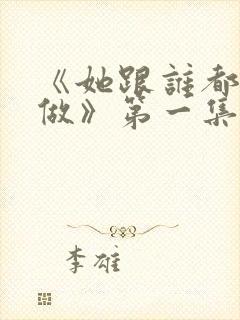 《她跟誰都
做》第一集
李雄